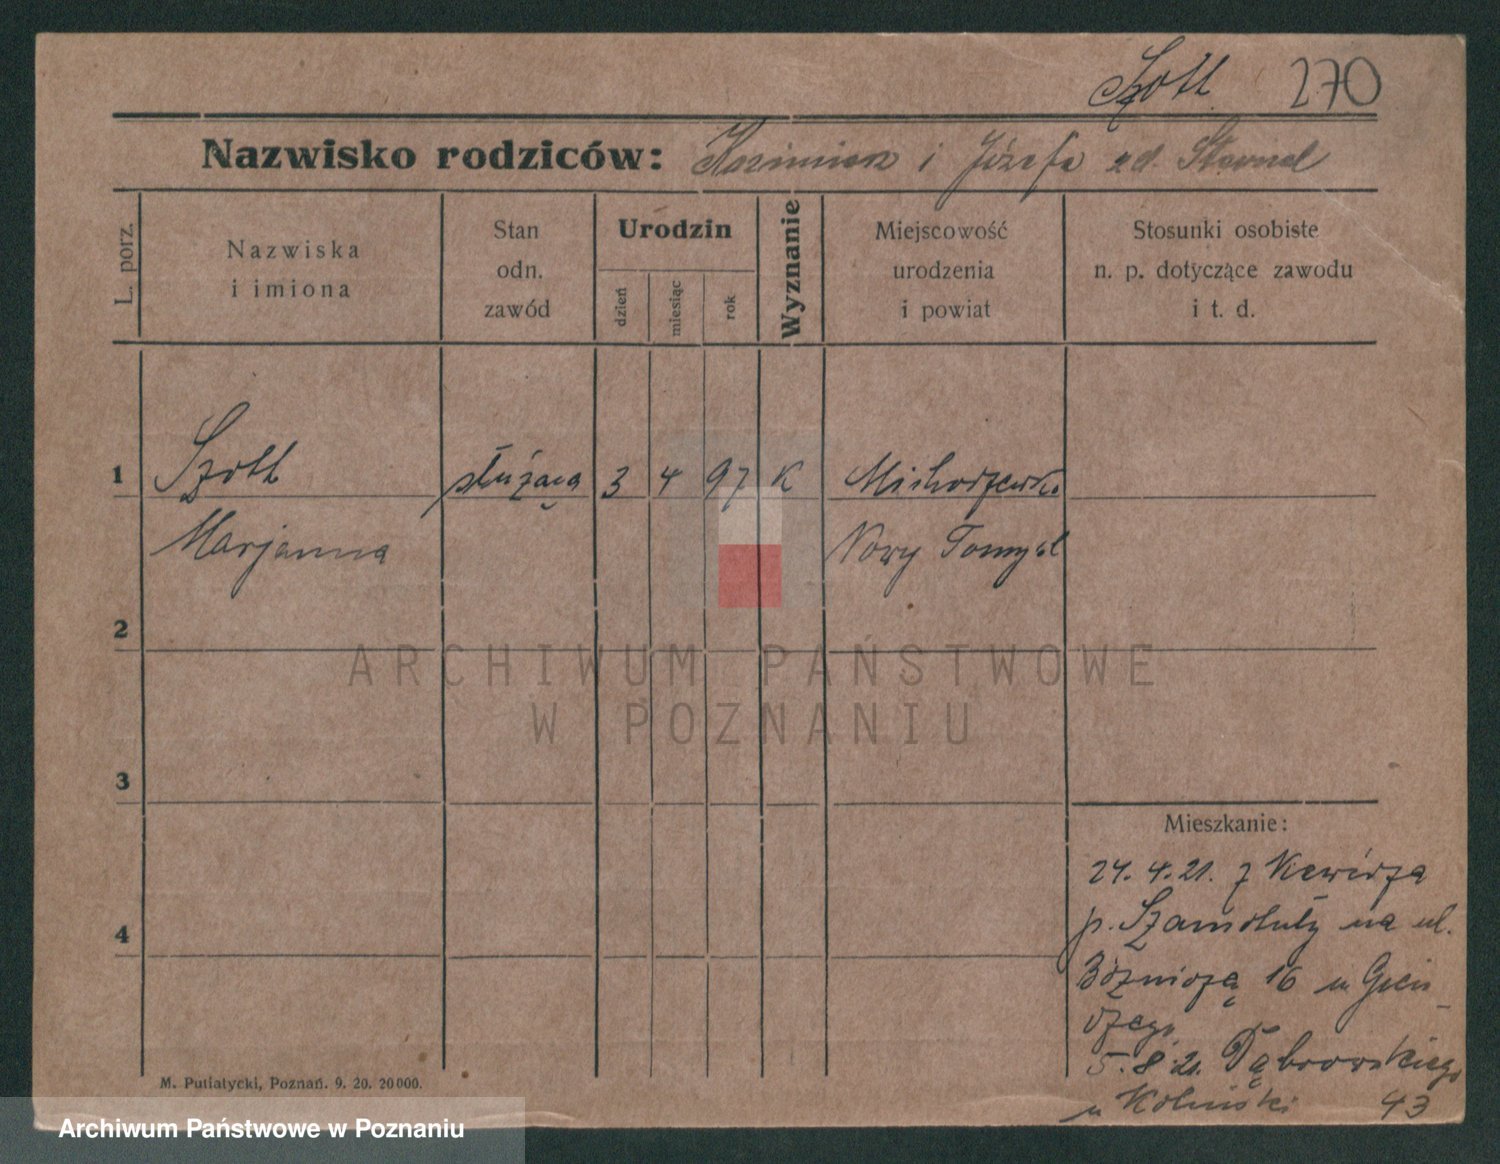 Szott 270
Nazwisko rodziców: Kazimierz i Józefa zd.
L. porz.
Nazwiska
i imiona
Stan
odn.
zawód
Urodzin
dzień
miesiąc
rok
Wyznanie
Miejscowość
urodzenia
i powiat
Stosunki osobiste
n. p. dotyczące zawodu
i t. d.
1 Szott służąca 3 4 97 K Michorzewko
Marjanna Nowy Tomyśl
2
3
4
Mieszkanie:
24. 4. 21. z
p. Szamotuły na ul.
16 u
5. 8. 21. Dąbrowskiego
u 43
M. Putiatycki, Poznań. 9. 20. 20000.
ARCHIWUM PAŃSTWOWE
W POZNANIU
Archiwum Państwowe w Poznaniu